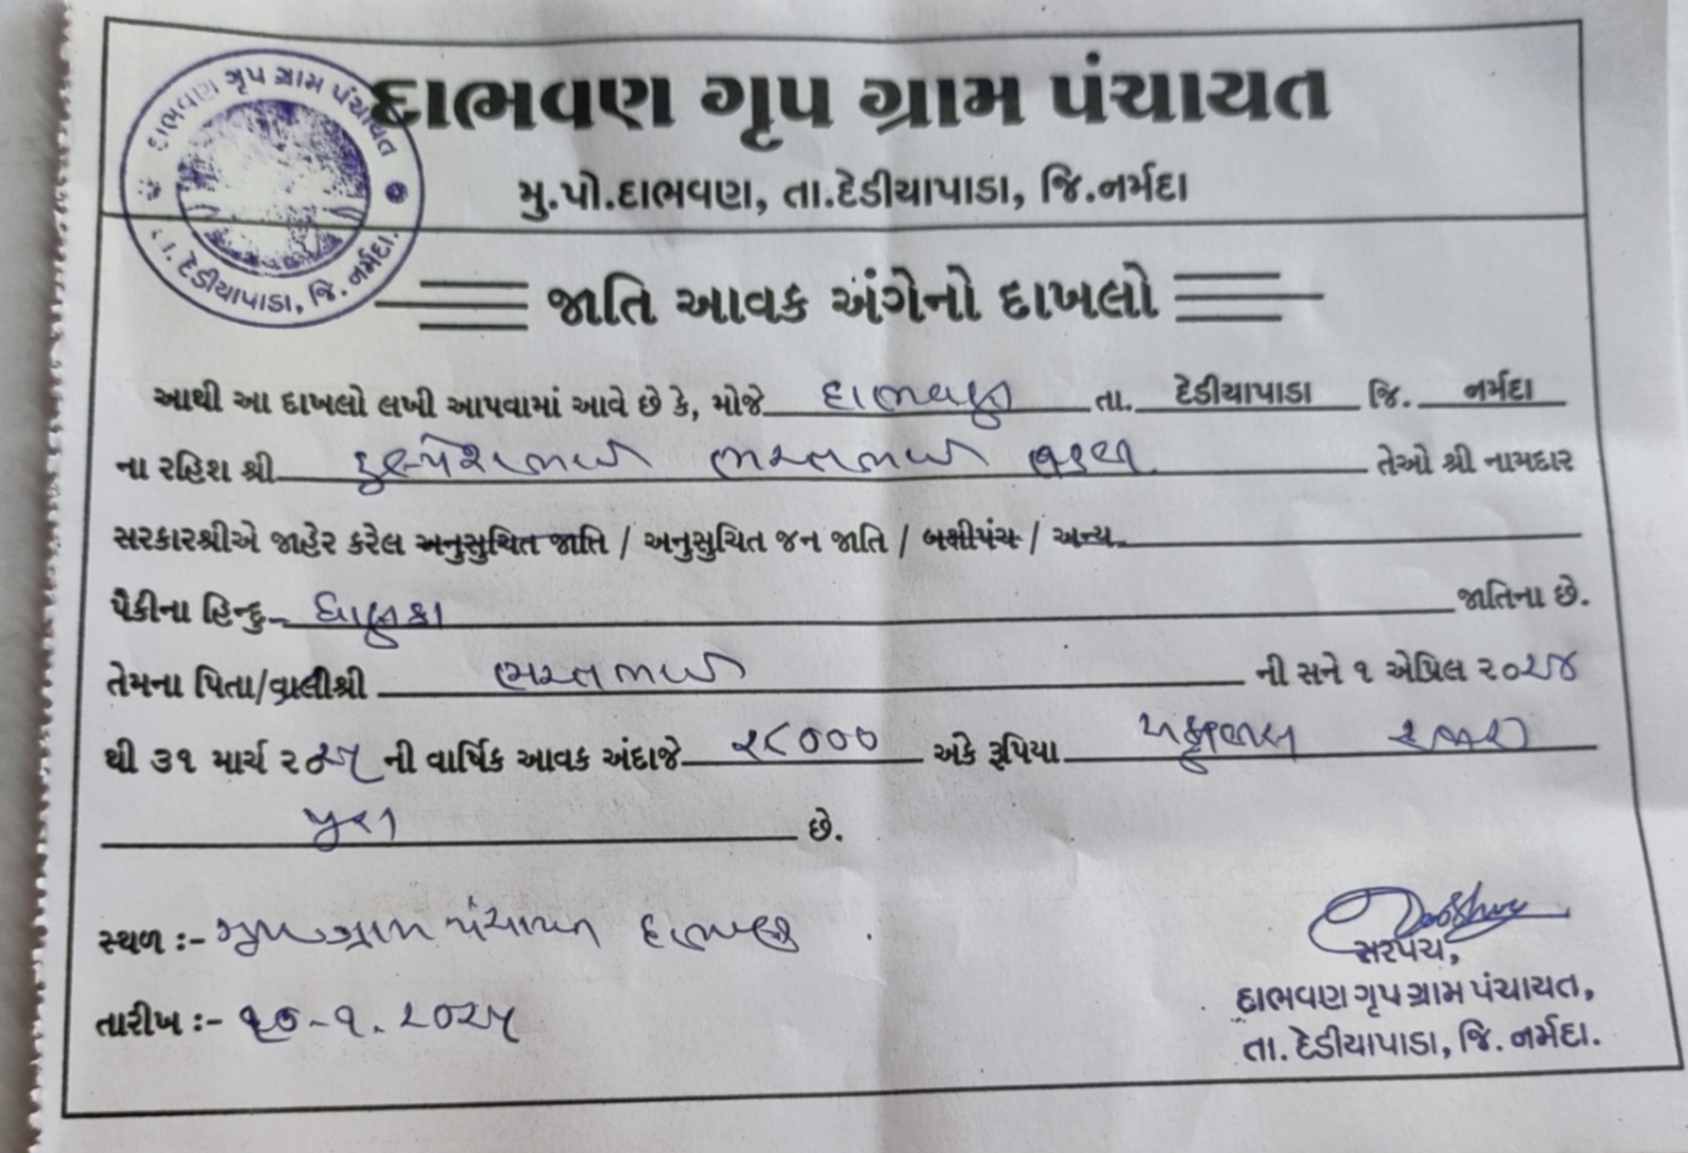 દાભવણ ગૃપ ગ્રામ પંચાયત
દાભવણ ગૃપ ગ્રામ પંચાયત
તા. દેડીયાપાડા, જિ. નર્મદા.
મુ.પો.દાભવણ, તા.દેડીયાપાડા, જિ.નર્મદા
જાતિ આવક અંગેનો દાખલો
આથી આ દાખલો લખી આપવામાં આવે છે કે, મોજે દાભવણ તા. દેડીયાપાડા જિ. નર્મદા
ના રહિશ શ્રી ભરતભાઈ તેઓ શ્રી નામદાર
સરકારશ્રીએ જાહેર કરેલ અનુસુચિત જાતિ / અનુસુચિત જન જાતિ / બક્ષીપંચ / અન્ય
પૈકીના હિન્દુ ધાણકા જાતિના છે.
તેમના પિતા/વાલીશ્રી ભરતભાઈ ની સને ૧ એપ્રિલ ૨૦૨૪
થી ૩૧ માર્ચ ૨૦૨૫ ની વાર્ષિક આવક અંદાજે ૨૮૦૦૦ અંકે રૂપિયા
પુરા છે.
સ્થળ :- ગૃપ ગ્રામ પંચાયત દાભવણ
તારીખ :- ૧.૨૦૨૫
સરપંચ,
દાભવણ ગૃપ ગ્રામ પંચાયત,
તા. દેડીયાપાડા, જિ. નર્મદા.